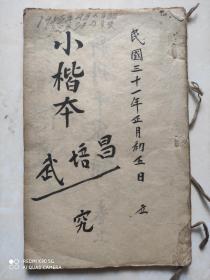 民國三十一年正月初五日 立
小楷本
武培昌
究
REDMI NOTE 8
AI QUAD CAMERA